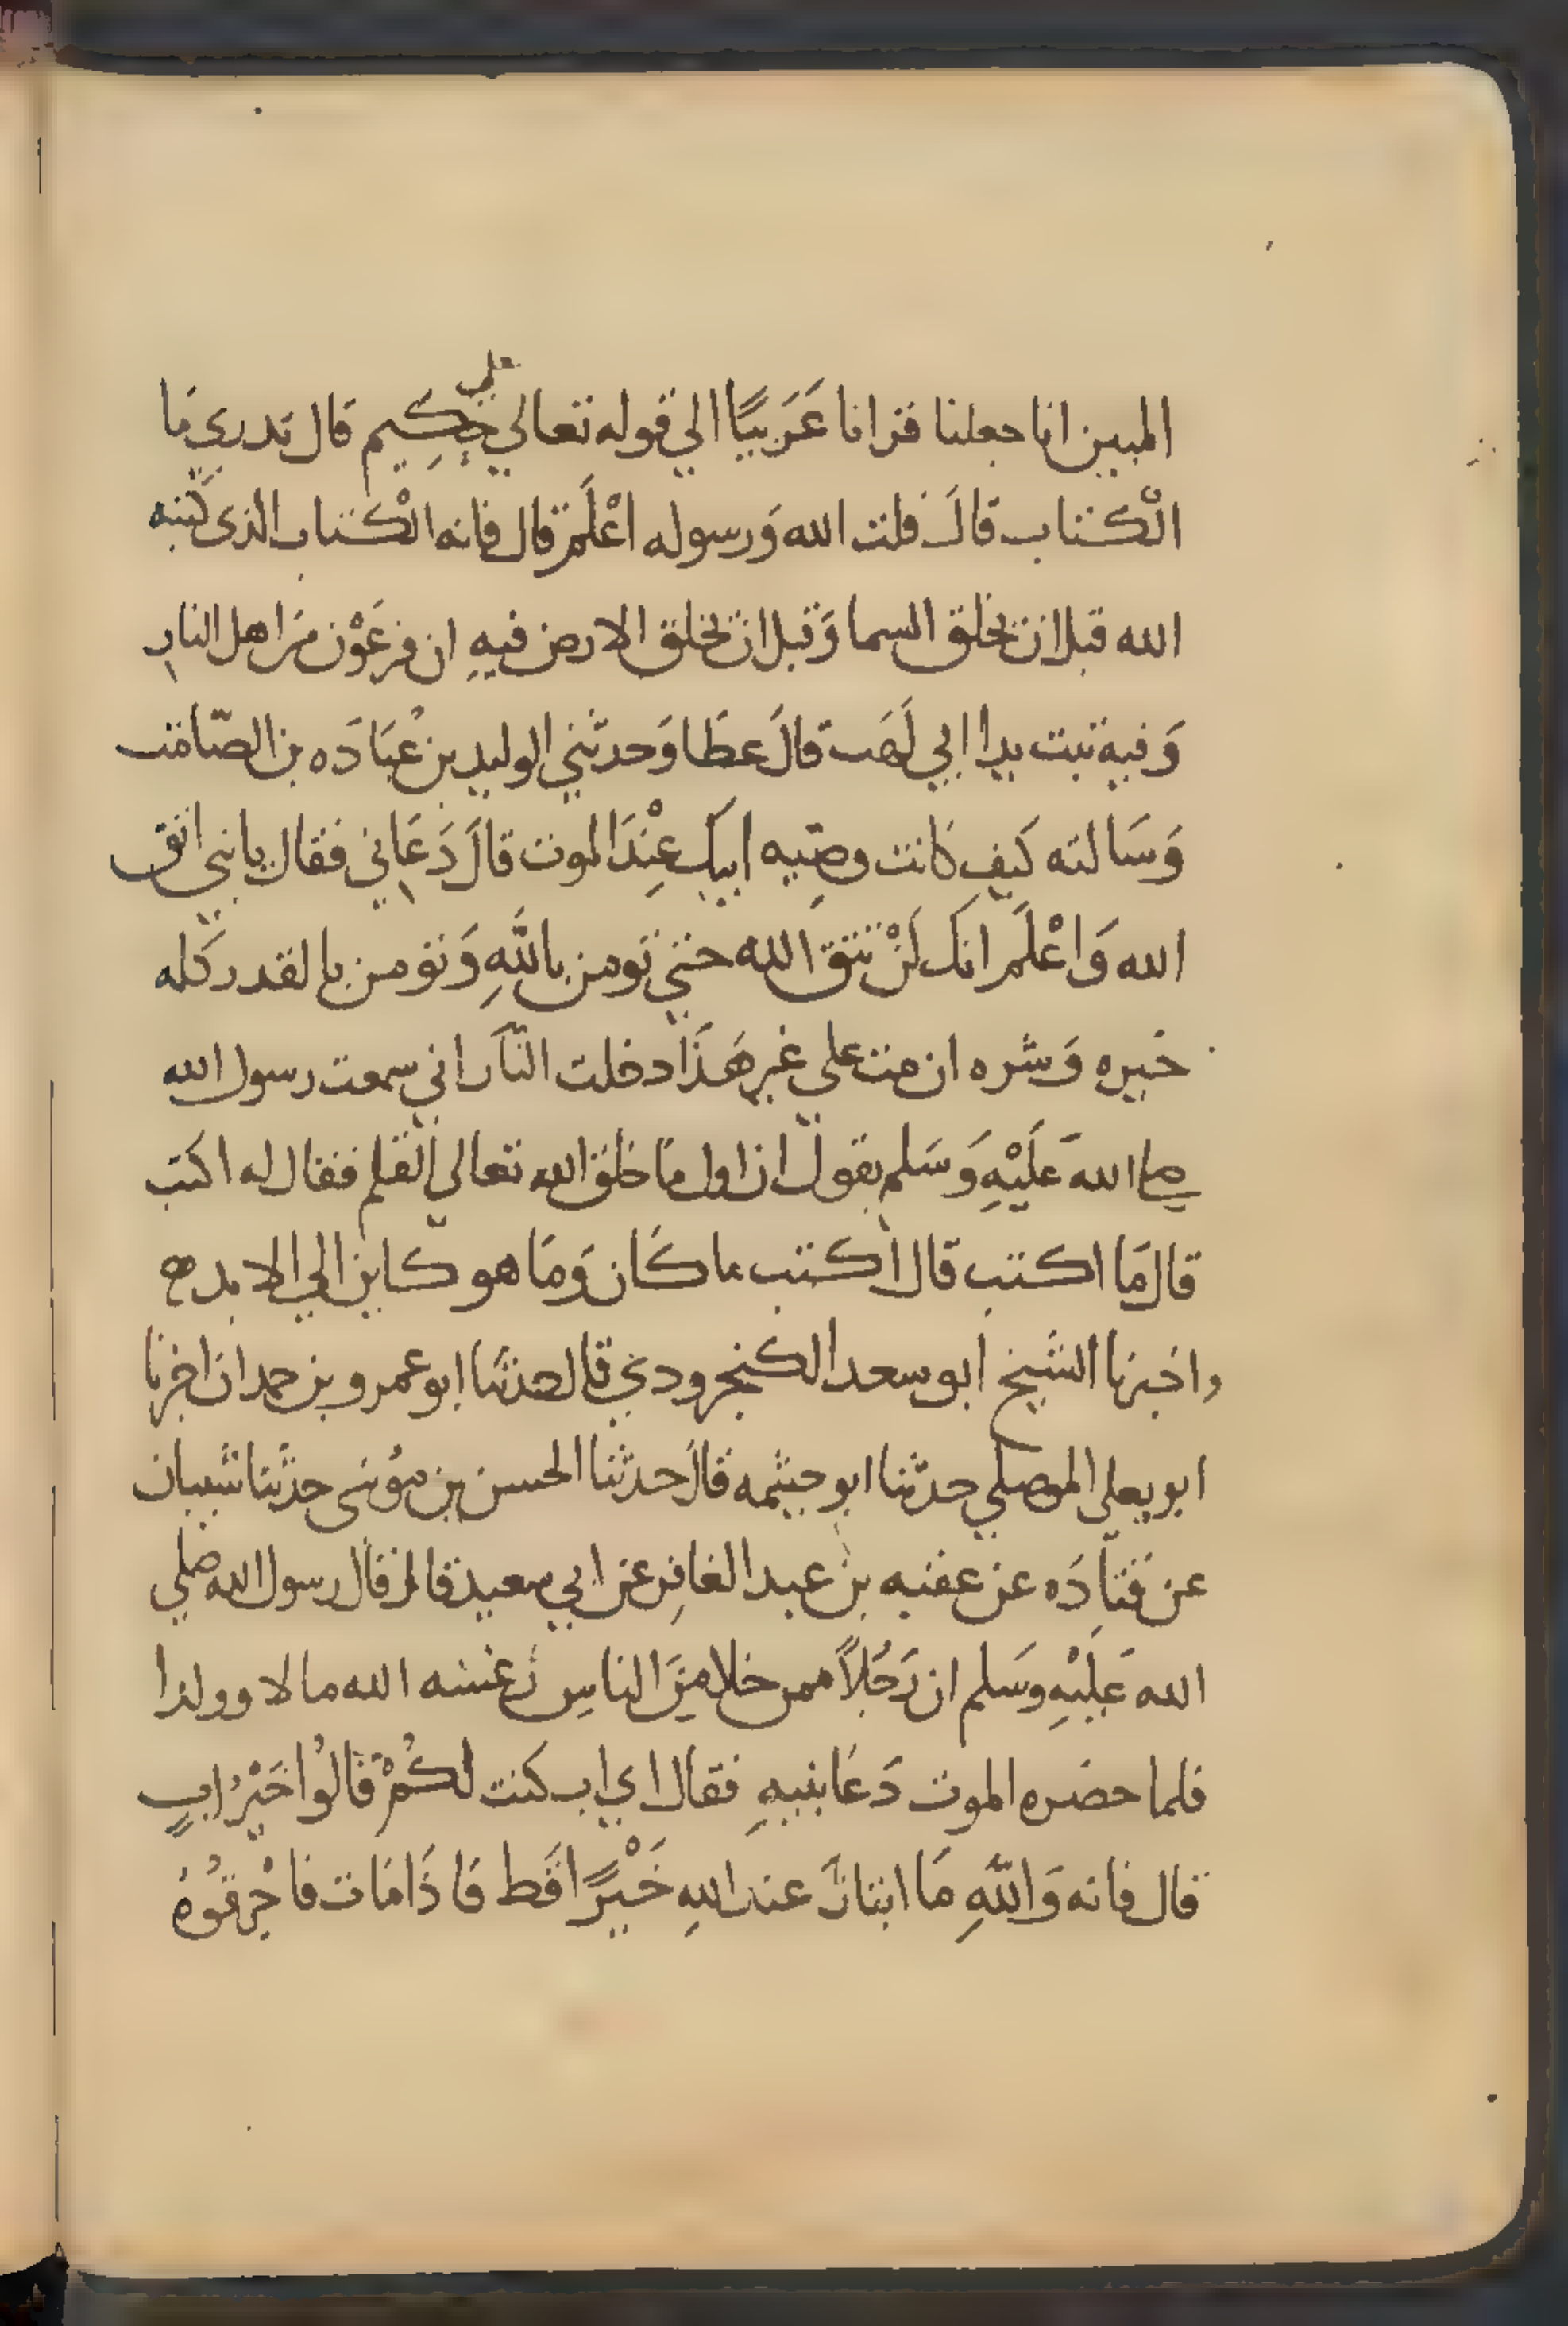 علي
المبين انا جعلنا قرانا عَرَبيًا الي قوله تعالي حكِيم قال تدري مَا
الْكتاب قالَ قلت الله وَرسوله اعْلَم قال فانه الْكتاب الذى كتبه
الله قبل ان يخلق السما وَقبل ان يخلق الارض فيهِ ان فرعَوْن مَن اهل النار
وَفيه تبت يدا ابي لَهَب قالَ عطَا وَحدثني الوليد بن عُبَادَه بن الصّامت
وَسَالته كَيف كانت وصِيّه ابيك عِنْدَ الموت قالَ دَعَاني فقال يا بني اتق
الله وَاعْلَم انك لَنْ تتق الله حتي تومن باللهِ وَتومن بالقدر كَله
خيره وَشره ان مت علي غير هَذَا دخلت النّار اني سمعت رسول الله
صلى الله عَلَيْهِ وَسَلم يقول ان اول مَا خلق الله تعالي القلم فقال له اكتب
قال مَا اكتب قال اكتب ما كَان وَمَا هو كاين الي الابد ه
واخبرنا الشيخ ابو سعد الكنجرودي قال حدثنا ابو عمرو بن حمدان اخبرنا
ابو يعلي الموصلي حدثنا ابو خيثمه قالَ حدثنا الحسن بن مُوسَى حدثنا شيبان
عن قتادَه عن عقبه بن عبد الغافِر عن ابي سعيد قال قال رسول الله صلي
الله عَلَيْهِ وَسَلم ان رَجُلاً ممن خلا مِنَ الناسِ رَغسه الله مالا وولدا
فلما حضره الموت دَعَا بنيهِ فقال اي اب كنت لكُمْ قالُوا خَيْرُ ابٍ
قال فانه وَاللهِ مَا ابتار عند اللهِ خَيْرًا قَط فَاذَا مَات فاحْرِقُوهُ